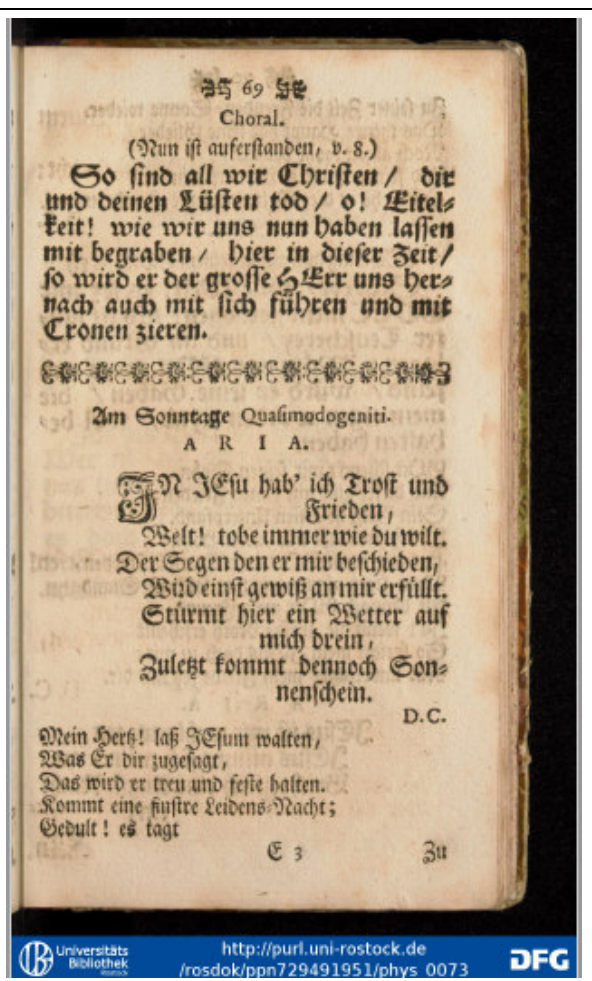 69
Choral.
(Nun ist auferstanden, v. 8.)
So sind all wir Christen / dir
und deinen Lüsten tod / o! Eitel-
keit! wie wir uns nun haben lassen
mit begraben / hier in dieser Zeit /
so wird er der grosse HErr uns her-
nach auch mit sich führen und mit
Cronen zieren.
Am Sonntage Quasimodogeniti.
ARIA.
IN JEsu hab' ich Trost und
Frieden,
Welt! tobe immer wie du wilt.
Der Segen den er mir beschieden,
Wird einst gewiß an mir erfüllt.
Stürmt hier ein Wetter auf
mich drein,
Zuletzt kommt dennoch Son-
nenschein.
D.C.
Mein Hertz! laß JEsum walten,
Was Er dir zugesagt,
Das wird er treu und feste halten.
Kommt eine finstre Leidens-Nacht;
Gedult! es tagt
E 3 Zu
Universitäts
Bibliothek
Rostock
http://purl.uni-rostock.de
/rosdok/ppn729491951/phys_0073
DFG